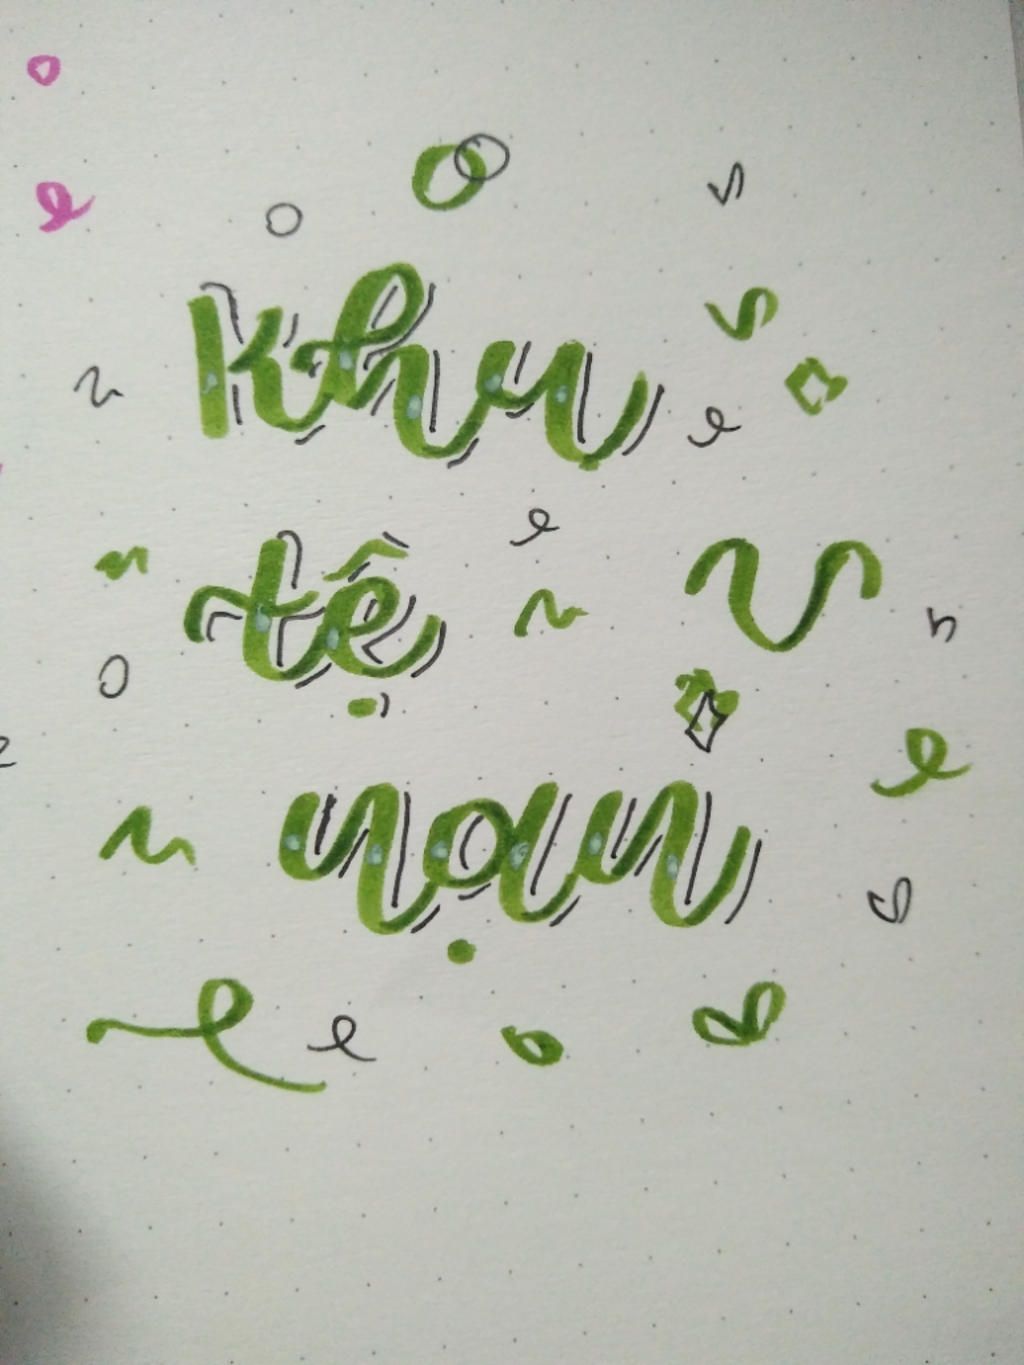 Khu
tệ
nạn